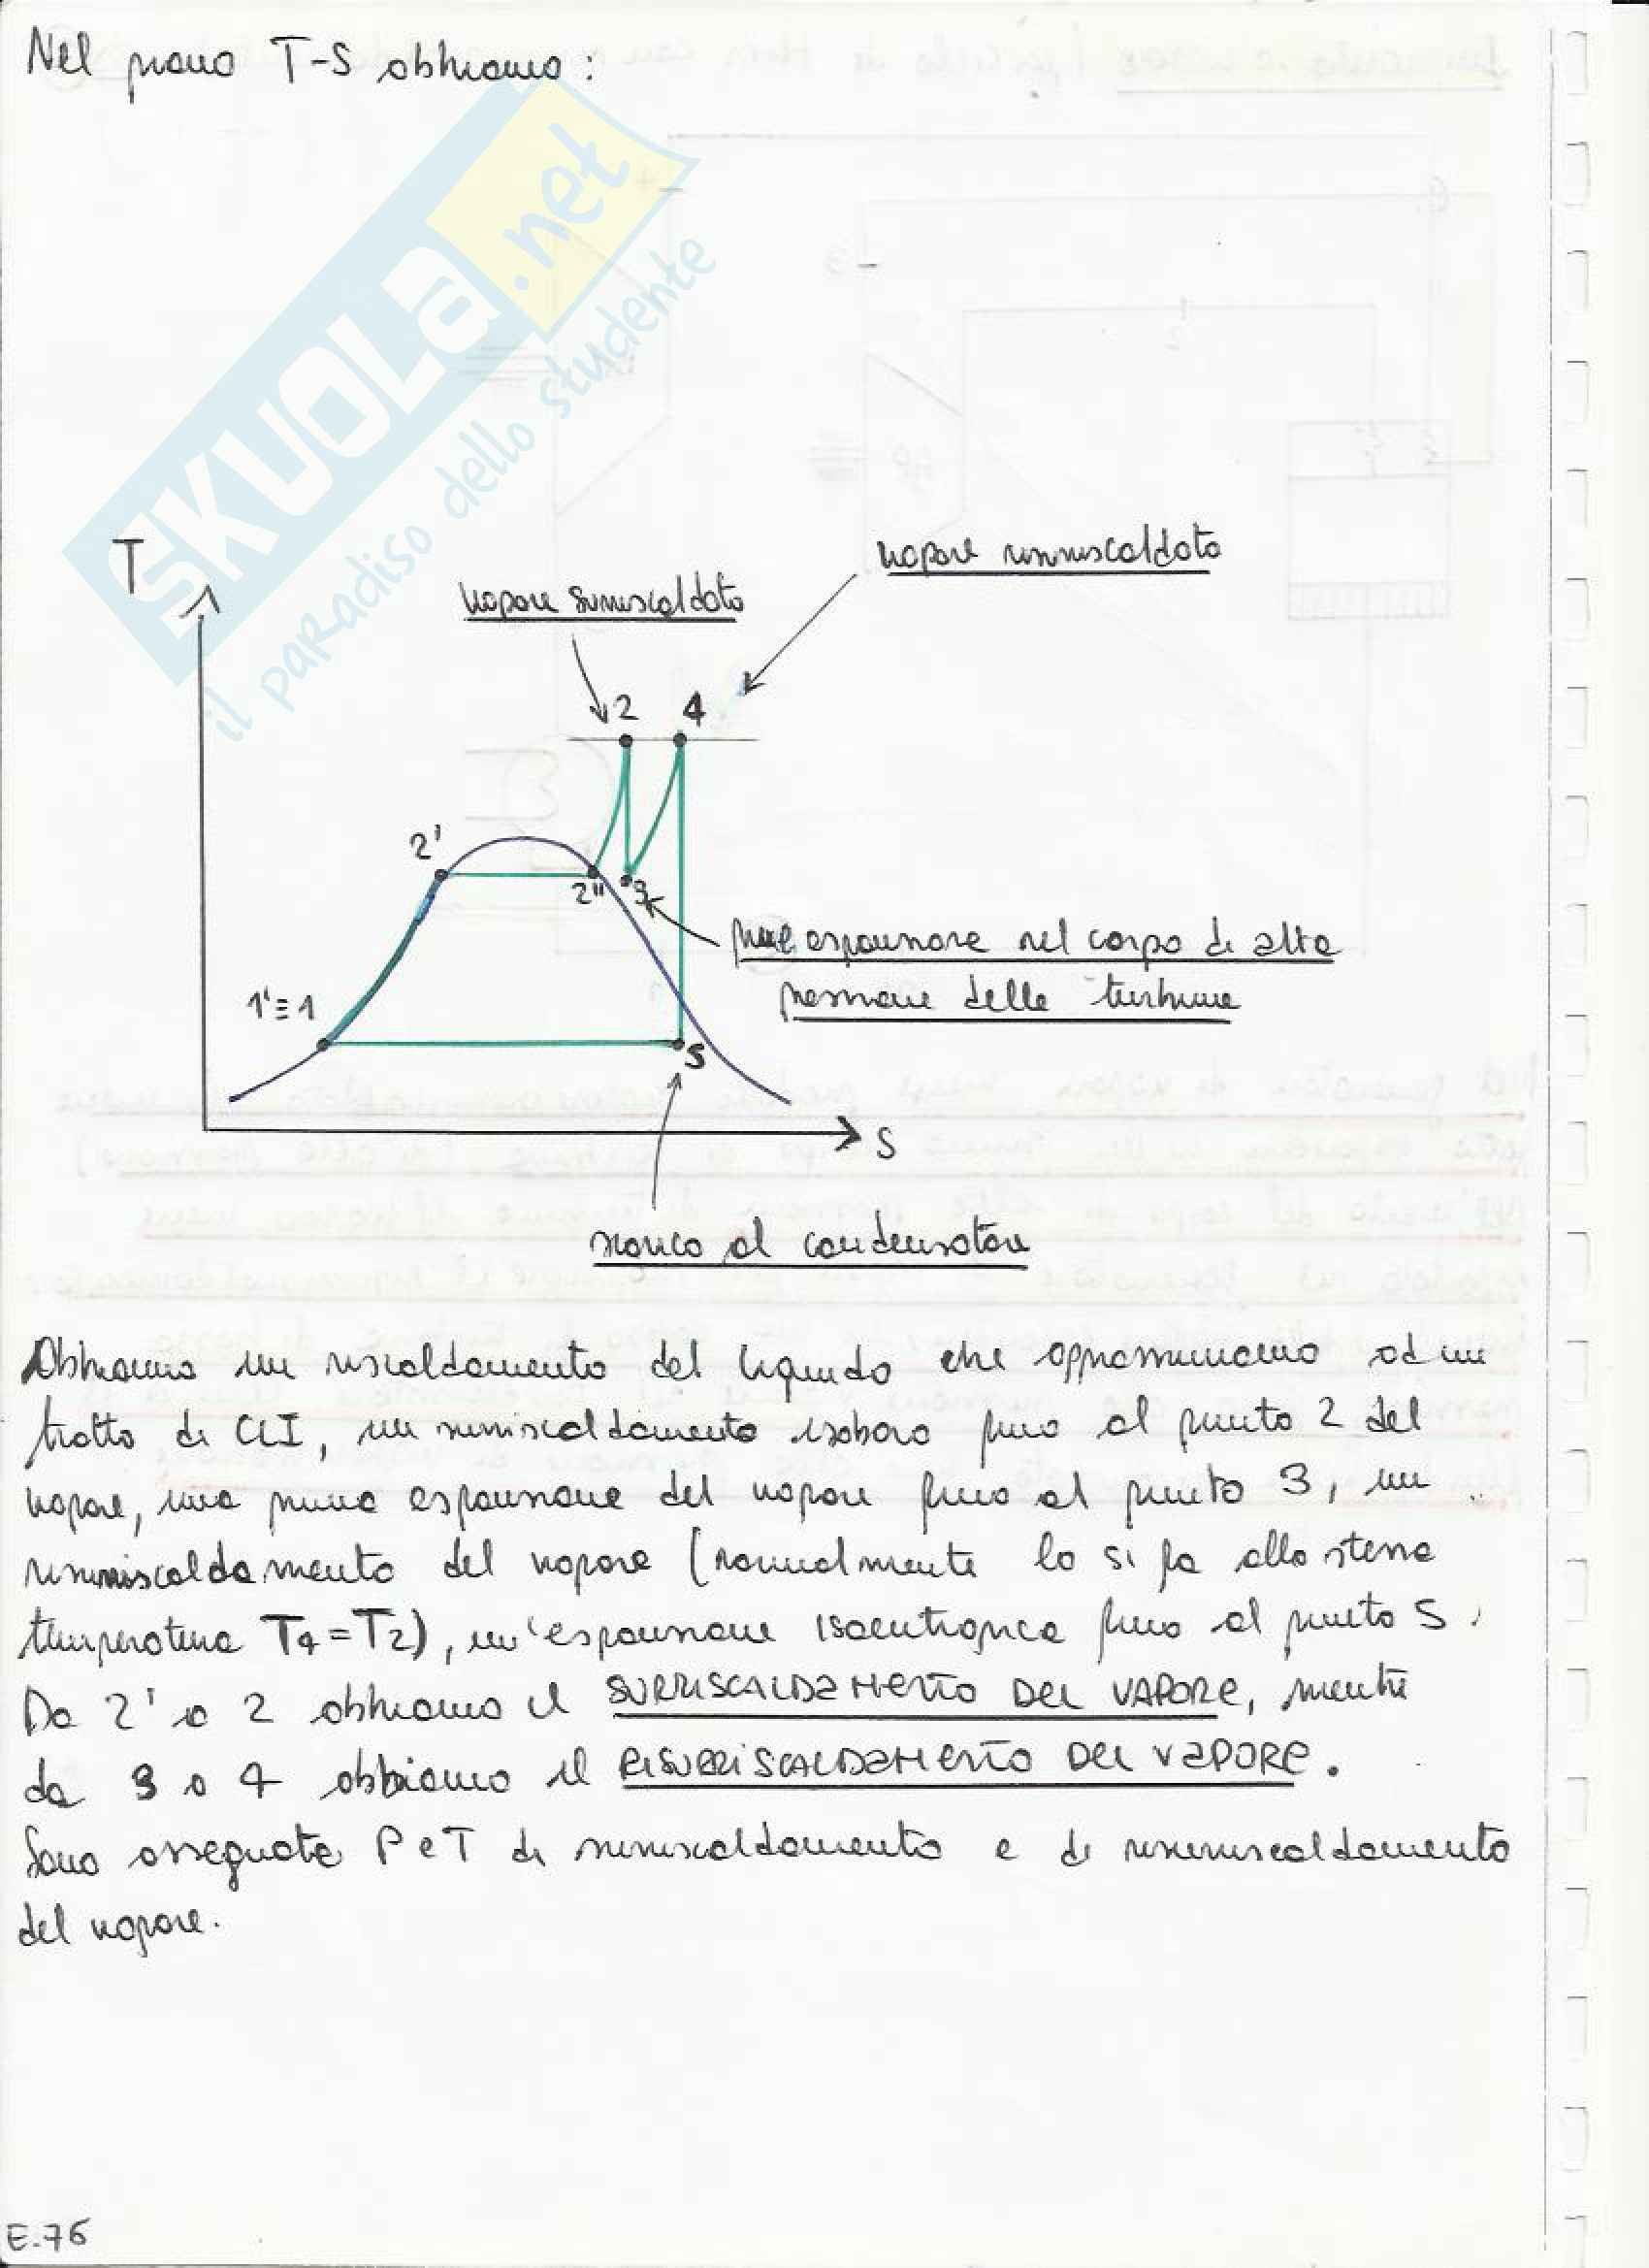 Nel piano T-S abbiamo:
SKUOLa.net
il paradiso dello studente
T
vapore risurriscaldato
vapore surriscaldato
2 4
2'
2" 3
fine espansione nel corpo di alta
pressione della turbina
1'≡1
5
S
scarico al condensatore
Abbiamo un riscaldamento del liquido che approssimiamo ad un
tratto di CLI, un surriscaldamento isobaro fino al punto 2 del
vapore, una prima espansione del vapore fino al punto 3, un
risurriscaldamento del vapore (normalmente lo si fa alla stessa
temperatura T4=T2), un'espansione isoentropica fino al punto 5.
Da 2' a 2 abbiamo il SURRISCALDAMENTO DEL VAPORE, mentre
da 3 a 4 abbiamo il RISURRISCALDAMENTO DEL VAPORE.
Sono assegnate P e T di surriscaldamento e di risurriscaldamento
del vapore.
E.76